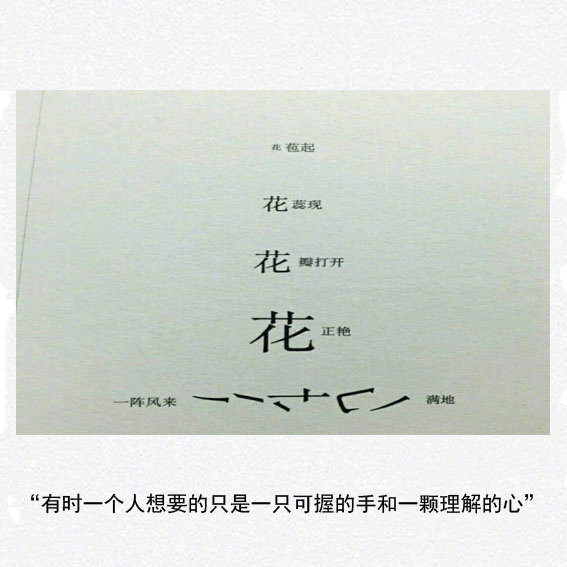 花苞起
花蕊现
花瓣打开
花正艳
一阵风来 满地
“有时一个人想要的只是一只可握的手和一颗理解的心”